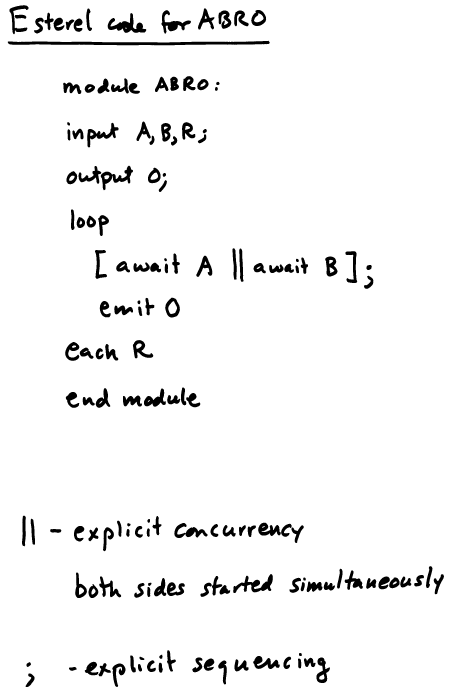 Esterel code for ABRO
module ABRO:
input A,B,R;
output O;
loop
[await A || await B];
emit O
each R
end module
|| - explicit concurrency
both sides started simultaneously
; - explicit sequencing